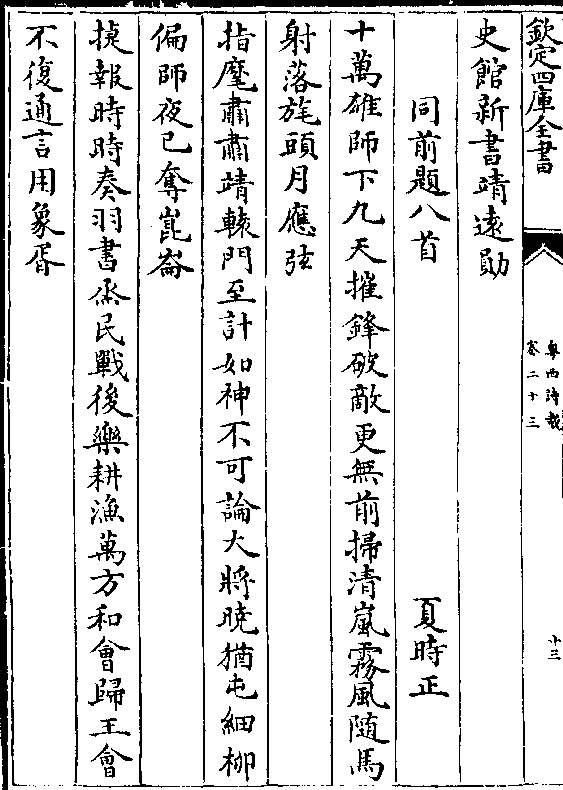 欽定四庫全書
粵西詩載
卷二十三
十三
史館新書靖遠勛
同前題八首
夏時正
十萬雄師下九天摧鋒破敵更無前掃清嵐霧風隨馬
射落旄頭月應弦
指麾肅肅靖轅門至計如神不可論大將曉猶屯細柳
偏師夜已奪崑崙
捷報時時奏羽書烝民戰後樂耕漁萬方和會歸王會
不復通言用象胥